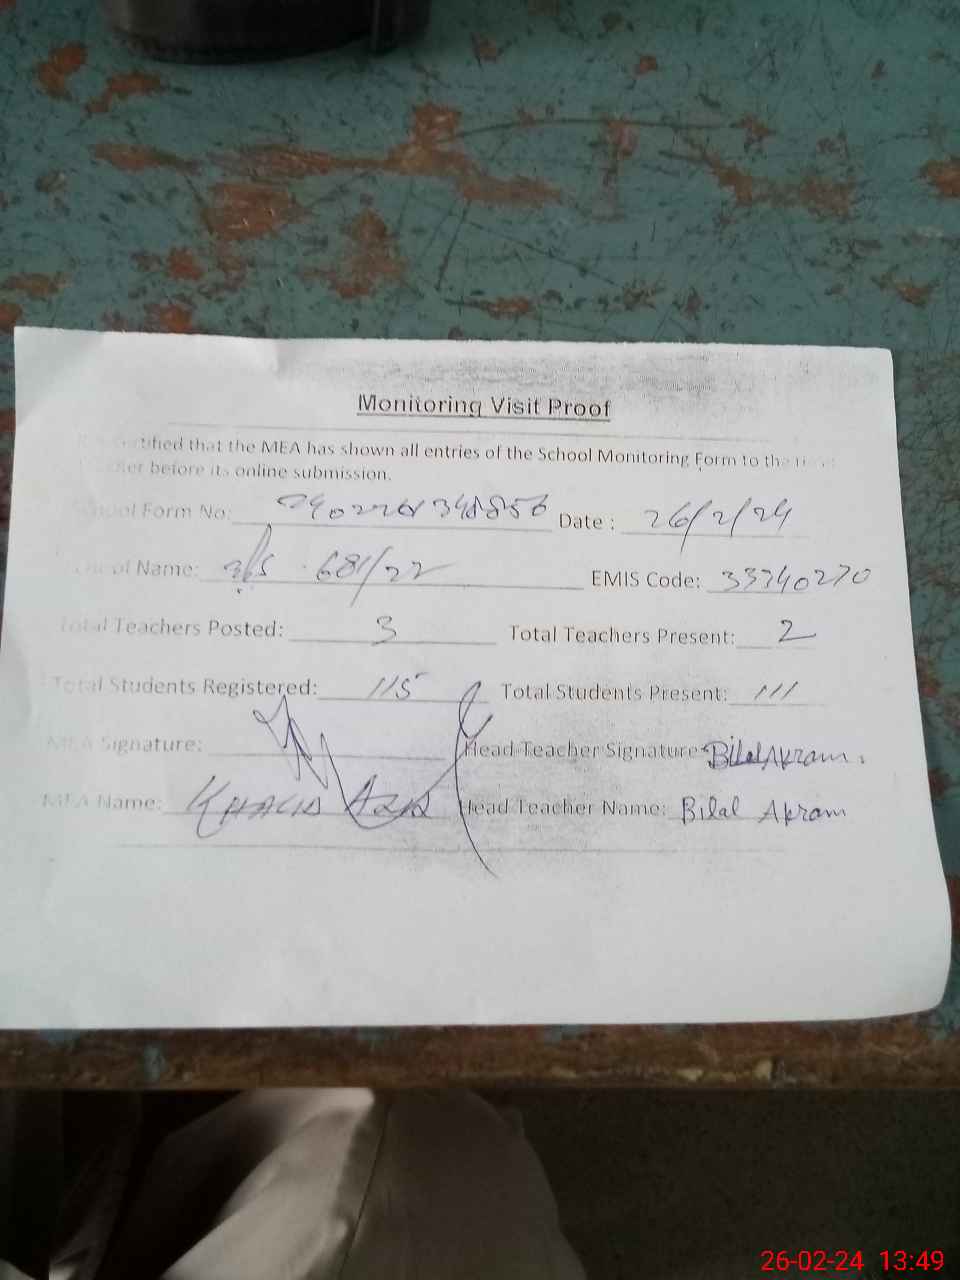 Monitoring Visit Proof
certified that the MEA has shown all entries of the School Monitoring Form to the
before its online submission.
School Form No: Date : 26/2/24
School Name: 681/22 EMIS Code: 33340270
Total Teachers Posted: 3 Total Teachers Present: 2
Total Students Registered: 115 Total Students Present: 111
MEA Signature: Head Teacher Signature: Bilal Akram.
MEA Name: KHALID AZIZ Head Teacher Name: Bilal Akram
26-02-24 13:49